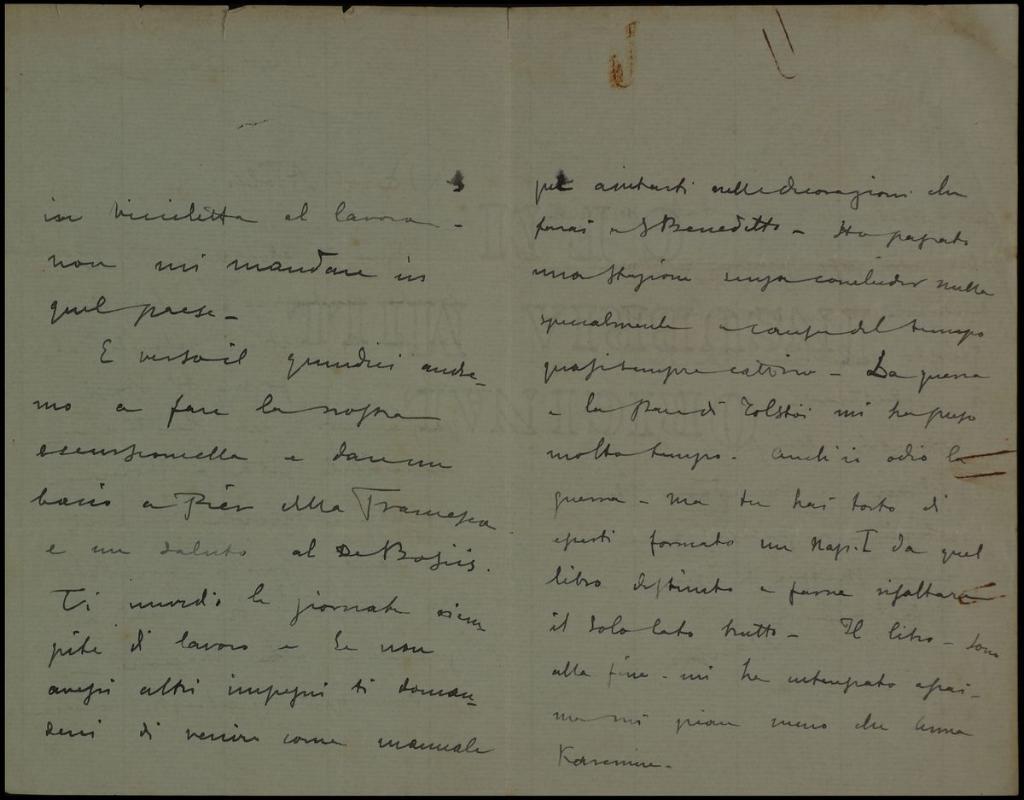 in bicicletta al lavoro -
non mi mandare in
quel paese -
E verso il quindici andre-
mo a fare la nostra
escursioncella e daremo
bacio a Pier della Francesca
e un saluto al De Bosis.
Ti invidio le giornate riem
pite di lavoro e Se non
avessi altri impegni ti doman-
derei di venire come manuale
per aiutarti nelle decorazioni che
farai a S Benedetto - Ho passato
una stagione senza concluder nulla
specialmente a causa del tempo
quasi sempre cattivo - La guerra
e la pace di Tolstòi mi ha preso
molto tempo. Anch'io odio la
guerra - ma tu hai torto di
esserti formato un Nap. I da quel
libro destinato a farne risaltare
il solo lato brutto - Il libro - sono
alla fine - mi ha interessato assai -
ma mi piace meno che Anna
Karenine -